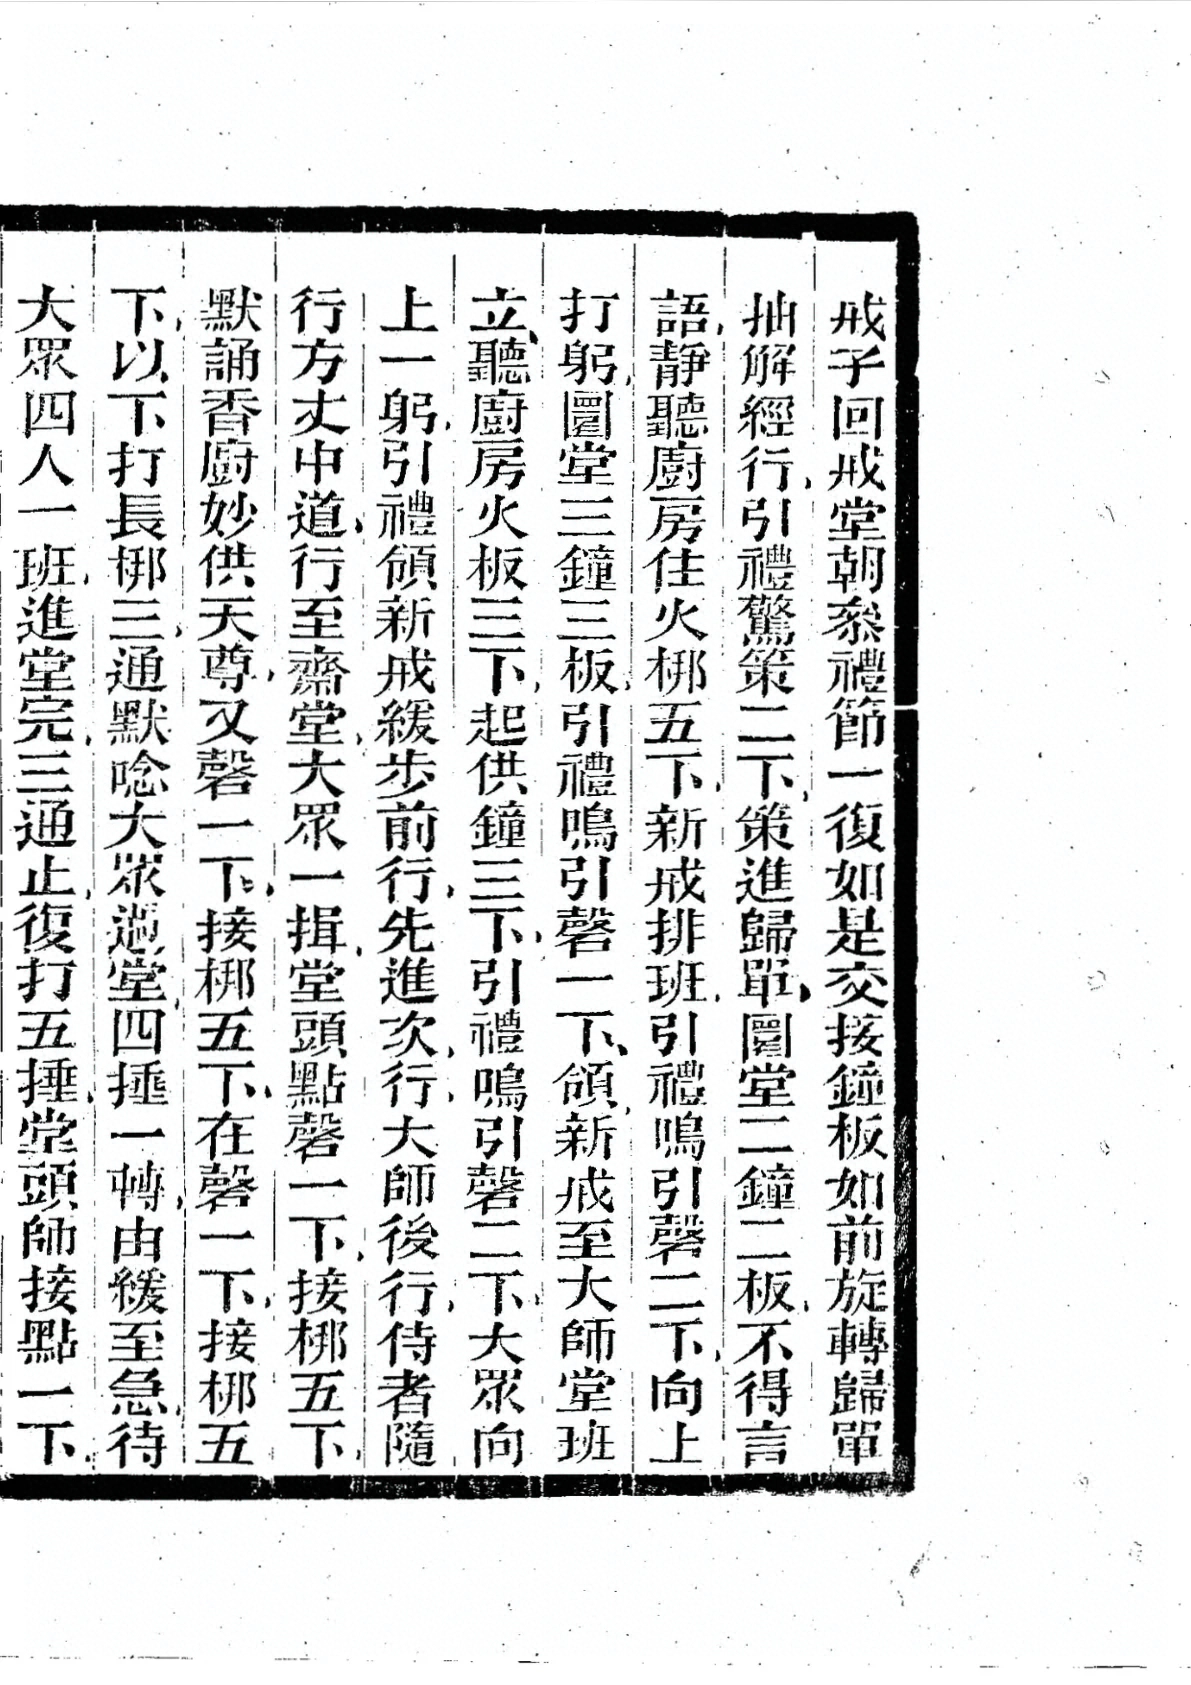 戒子回戒堂朝叅禮節一復如是交接鐘板如前旋轉歸單
抽解經行、引禮驚策二下、策進歸單、圜堂二鐘二板、不得言
語、靜聽廚房住火梆五下、新戒排班、引禮鳴引磬二下、向上
打躬、圜堂三鐘三板、引禮鳴引磬一下、領新戒至大師堂班
立、聽廚房火板三下、起供鐘三下、引禮鳴引磬二下、大眾向
上一躬、引禮領新戒緩步前行、先進次行、大師後行、侍者隨
行方丈中道、行至齋堂、大眾一揖、堂頭點磬一下、接梆五下、
默誦香廚妙供天尊、又磬一下、接梆五下、在磬一下、接梆五
下、以下打長梆三、通默唸大眾過堂、四捶一轉、由緩至急、待
大眾四人一班、進堂完、三通止、復打五捶、堂頭師接點一下、